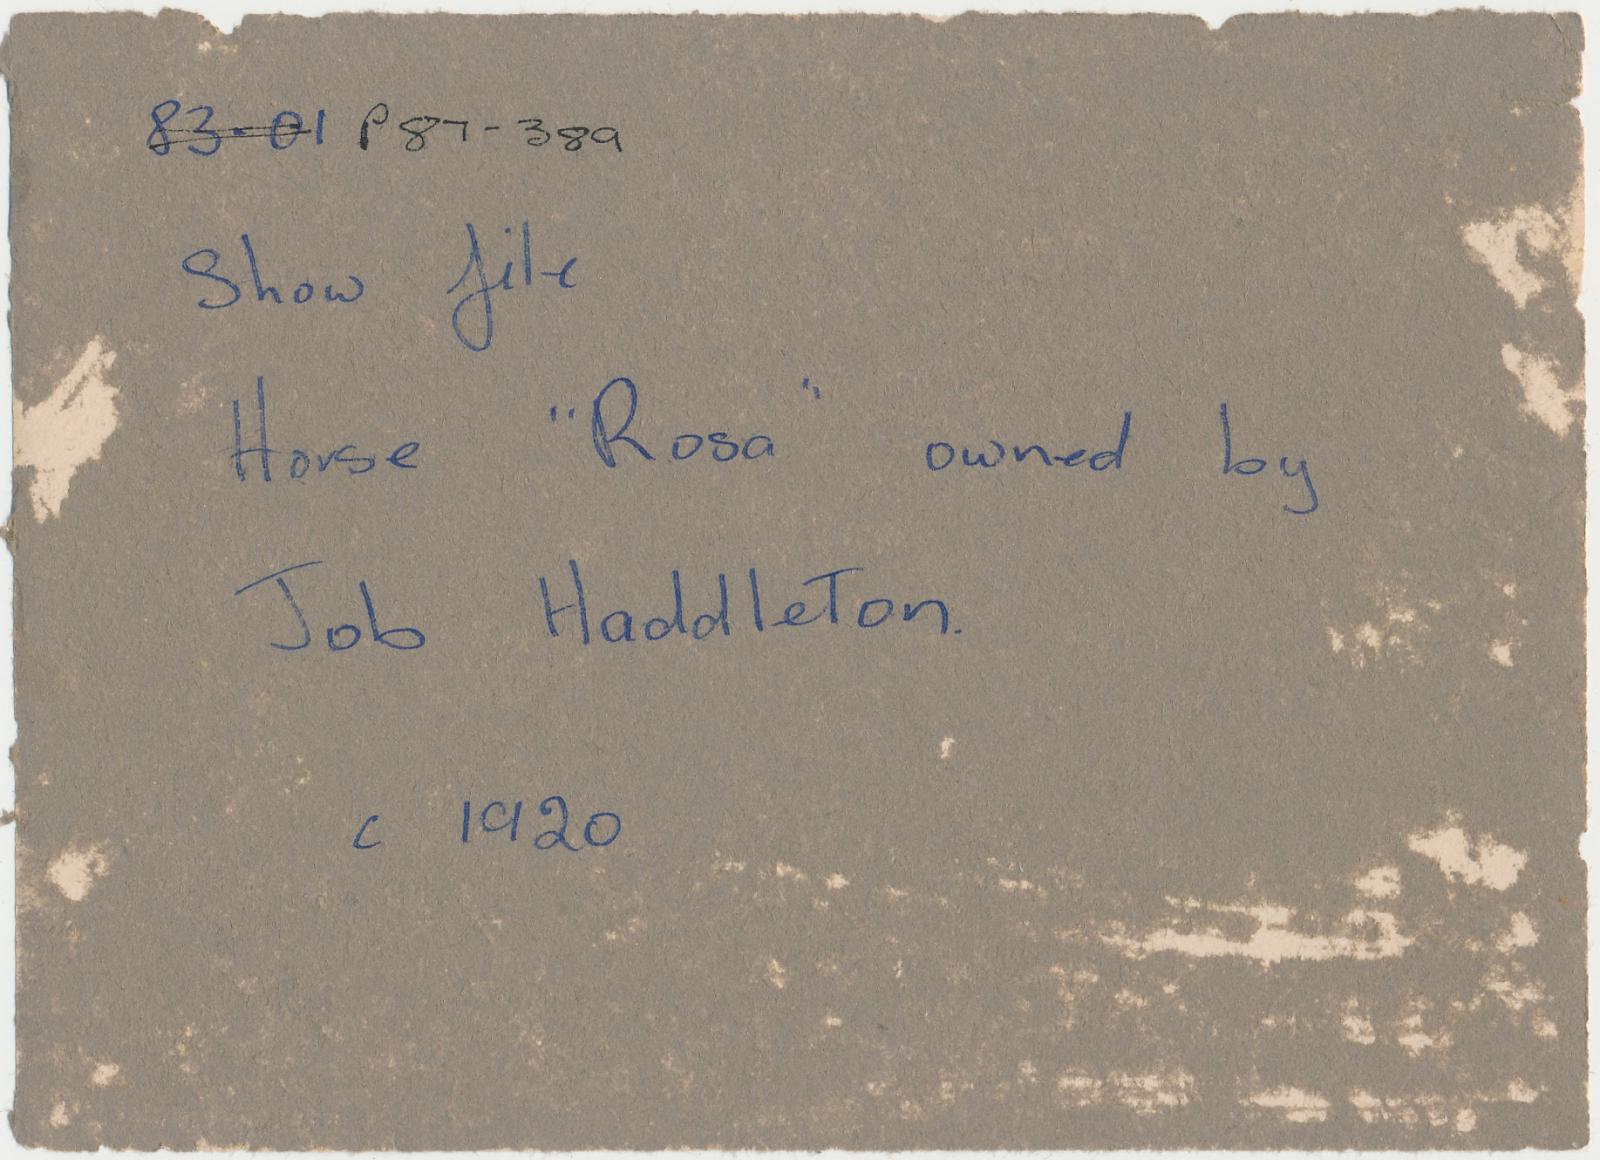 83-01 P87-389
Show file
Horse "Rosa" owned by
Job Haddleton.
c 1920